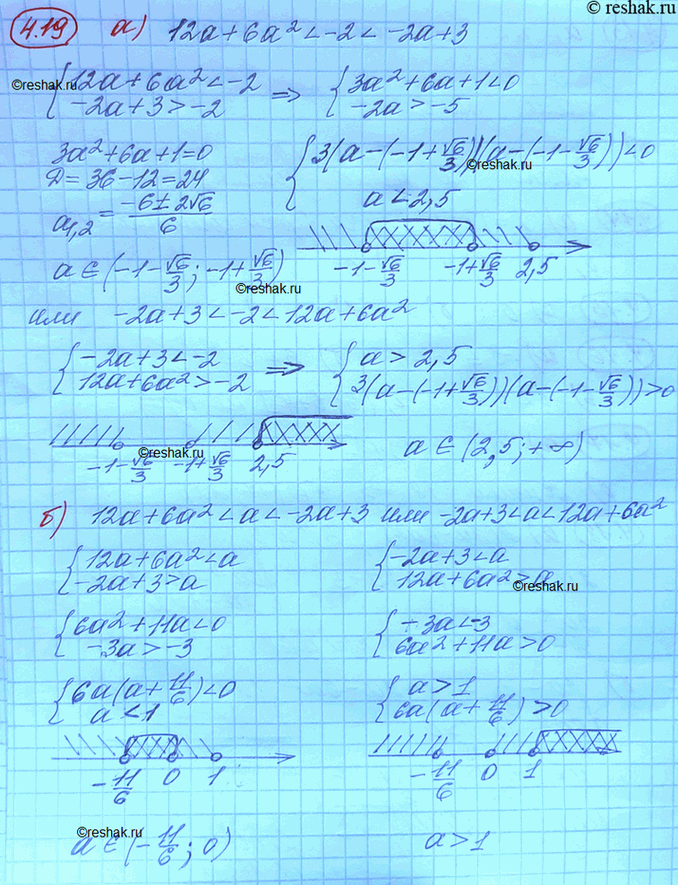 © reshak.ru
4.19 а) 12a+6a²<-2<-2a+3
{12a+6a²<-2 ⇒ {3a²+6a+1<0
-2a+3>-2 -2a>-5
©reshak.ru
3a²+6a+1=0 {3(a-(-1+√6/3))(a-(-1-√6/3))<0
D=36-12=24 a<2,5
©reshak.ru
a₁,₂=(-6±2√6)/6
-1-√6/3 -1+√6/3 2,5
a∈(-1-√6/3; -1+√6/3)
©reshak.ru
или -2a+3<-2<12a+6a²
{-2a+3<-2 ⇒ {a>2,5
12a+6a²>-2 3(a-(-1+√6/3))(a-(-1-√6/3))>0
©reshak.ru
-1-√6/3 -1+√6/3 2,5 a∈(2,5;+∞)
б) 12a+6a²<a<-2a+3 или -2a+3<a<12a+6a²
{12a+6a²<a {-2a+3<a
-2a+3>a 12a+6a²>a
©reshak.ru
{6a²+11a<0 {-3a<-3
-3a>-3 6a²+11a>0
{6a(a+11/6)<0 {a>1
a<1 6a(a+11/6)>0
-11/6 0 1 -11/6 0 1
©reshak.ru
a∈(-11/6; 0) a>1